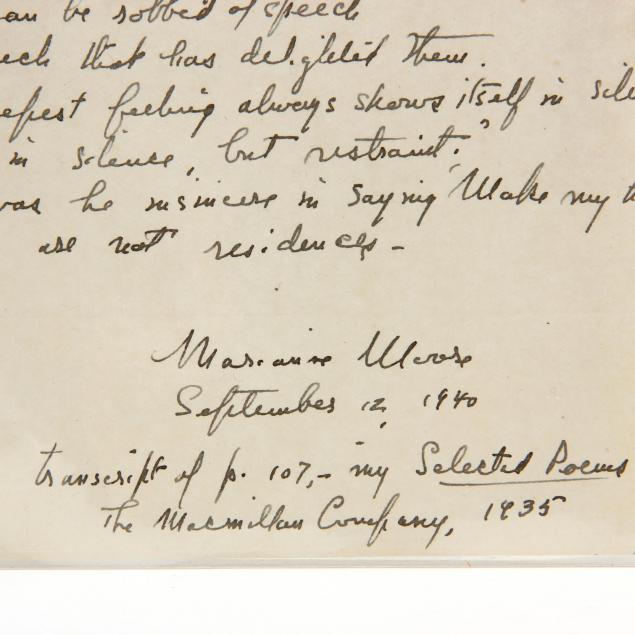 can be robbed of speech
eech that has delighted them.
eepest feeling always shows itself in sile
in silence, but restraint."
was he insincere in saying "Make my h
are not residences –
Marianne Moore
September 12, 1940
transcript of p. 107,– my Selected Poems
The Macmillan Company, 1935